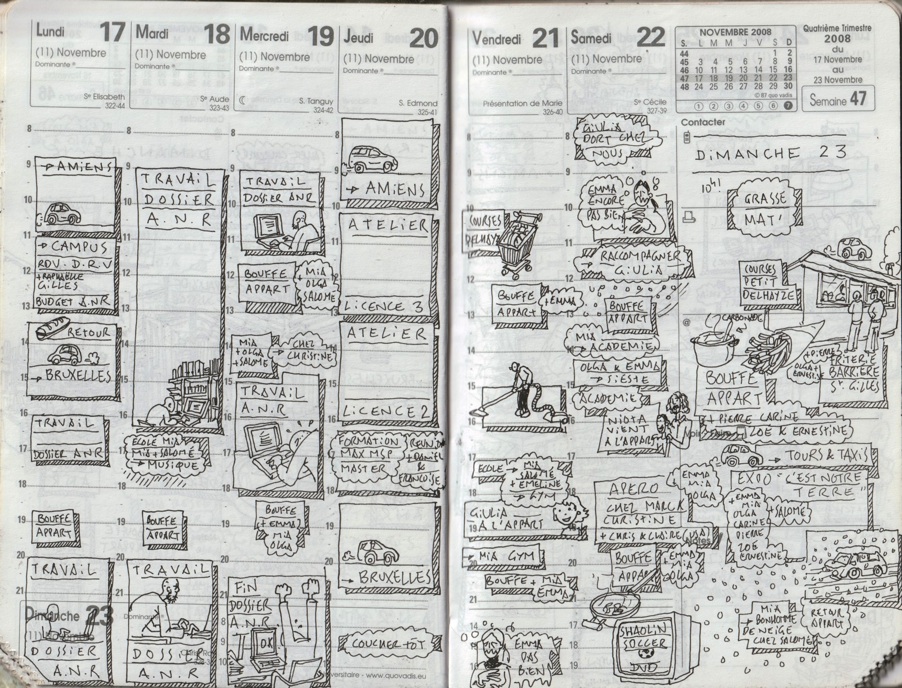 Lundi 17
(11) Novembre
Dominante
Ste Elisabeth
322-44
8
9
→ AMIENS
10
11
→ CAMPUS
RDV. D.R.V
+ RAPHAELLE
GILLES
BUDGET A.N.R
13
RETOUR
14
15
→ BRUXELLES
16
TRAVAIL
17
DOSSIER ANR
18
19
BOUFFE
APPART
20
TRAVAIL
21
Dimanche 23
DOSSIER
A.N.R
Mardi 18
(11) Novembre
Dominante
Ste Aude
323-43
8
TRAVAIL
DOSSIER
A.N.R
ECOLE MIA
MIA + SALOMÉ
→ MUSIQUE
BOUFFE
APPART
TRAVAIL
DOSSIER
A.N.R
Mercredi 19
(11) Novembre
Dominante
S. Tanguy
324-42
8
TRAVAIL
DOSSIER ANR
BOUFFE
APPART
MIA
OLGA
SALOMÉ
MIA
+ OLGA
+ SALOMÉ
→ CHEZ
CHRISTINE
TRAVAIL
A.N.R
BOUFFE
+ EMMA
MIA
OLGA
FIN
DOSSIER
A.N.R
OK
Jeudi 20
(11) Novembre
Dominante
S. Edmond
325-41
8
→ AMIENS
ATELIER
LICENCE 3
ATELIER
LICENCE 2
FORMATION
MAX MSP
MASTER
REUNION
+ DANIEL
&
FRANCOISE
→ BRUXELLES
COUCHER TÔT
www.quovadis.eu
Vendredi 21
(11) Novembre
Dominante
Présentation de Marie
326-40
8
COURSES
DELHAYZE
BOUFFE
APPART
+ EMMA
ECOLE → MIA
SALOMÉ
+ EMELINE
→ GYM
GIULIA
A L'APPART
→ MIA GYM
BOUFFE + MIA
EMMA
EMMA
PAS
BIEN
Samedi 22
(11) Novembre
Dominante
Ste Cécile
327-39
GIULIA
DORT CHEZ
NOUS
EMMA
ENCORE
PAS BIEN
RACCOMPAGNER
GIULIA
BOUFFE
APPART
MIA
→ ACADEMIE
OLGA & EMMA
→ SIESTE
ACADEMIE
NIOTA
VIENT
A L'APPART
APERO
CHEZ MARCA
CHRISTINE
+ CHRIS & CLAIRE
EMMA
MIA
OLGA
BOUFFE
APPART
+ EMMA
MIA
OLGA
SHAOLIN
SOCCER
DVD
NOVEMBRE 2008
S. L M M J V S D
44 1 2
45 3 4 5 6 7 8 9
46 10 11 12 13 14 15 16
47 17 18 19 20 21 22 23
48 24 25 26 27 28 29 30
1 2 3 4 5 6 7
Quatrième Trimestre
2008
du
17 Novembre
au
23 Novembre
Semaine 47
Contacter
DIMANCHE 23
10H1
GRASSE
MAT'
COURSES
PETIT
DELHAYZE
CARBONADE
FRITERIE
BARRIERE
ST. GILLES
+ PIERRE
OLGA +
ERNESTINE
BOUFFE
APPART
+ PIERRE CARINE
ZOE & ERNESTINE
→ TOURS & TAXIS
EXPO "C'EST NOTRE
TERRE"
EMMA
MIA
OLGA
CARINE
PIERRE
ZOE
ERNESTINE
+ SALOMÉ
MIA
→ BONHOMME
DE NEIGE
CHEZ SALOMÉ
RETOUR
APPART